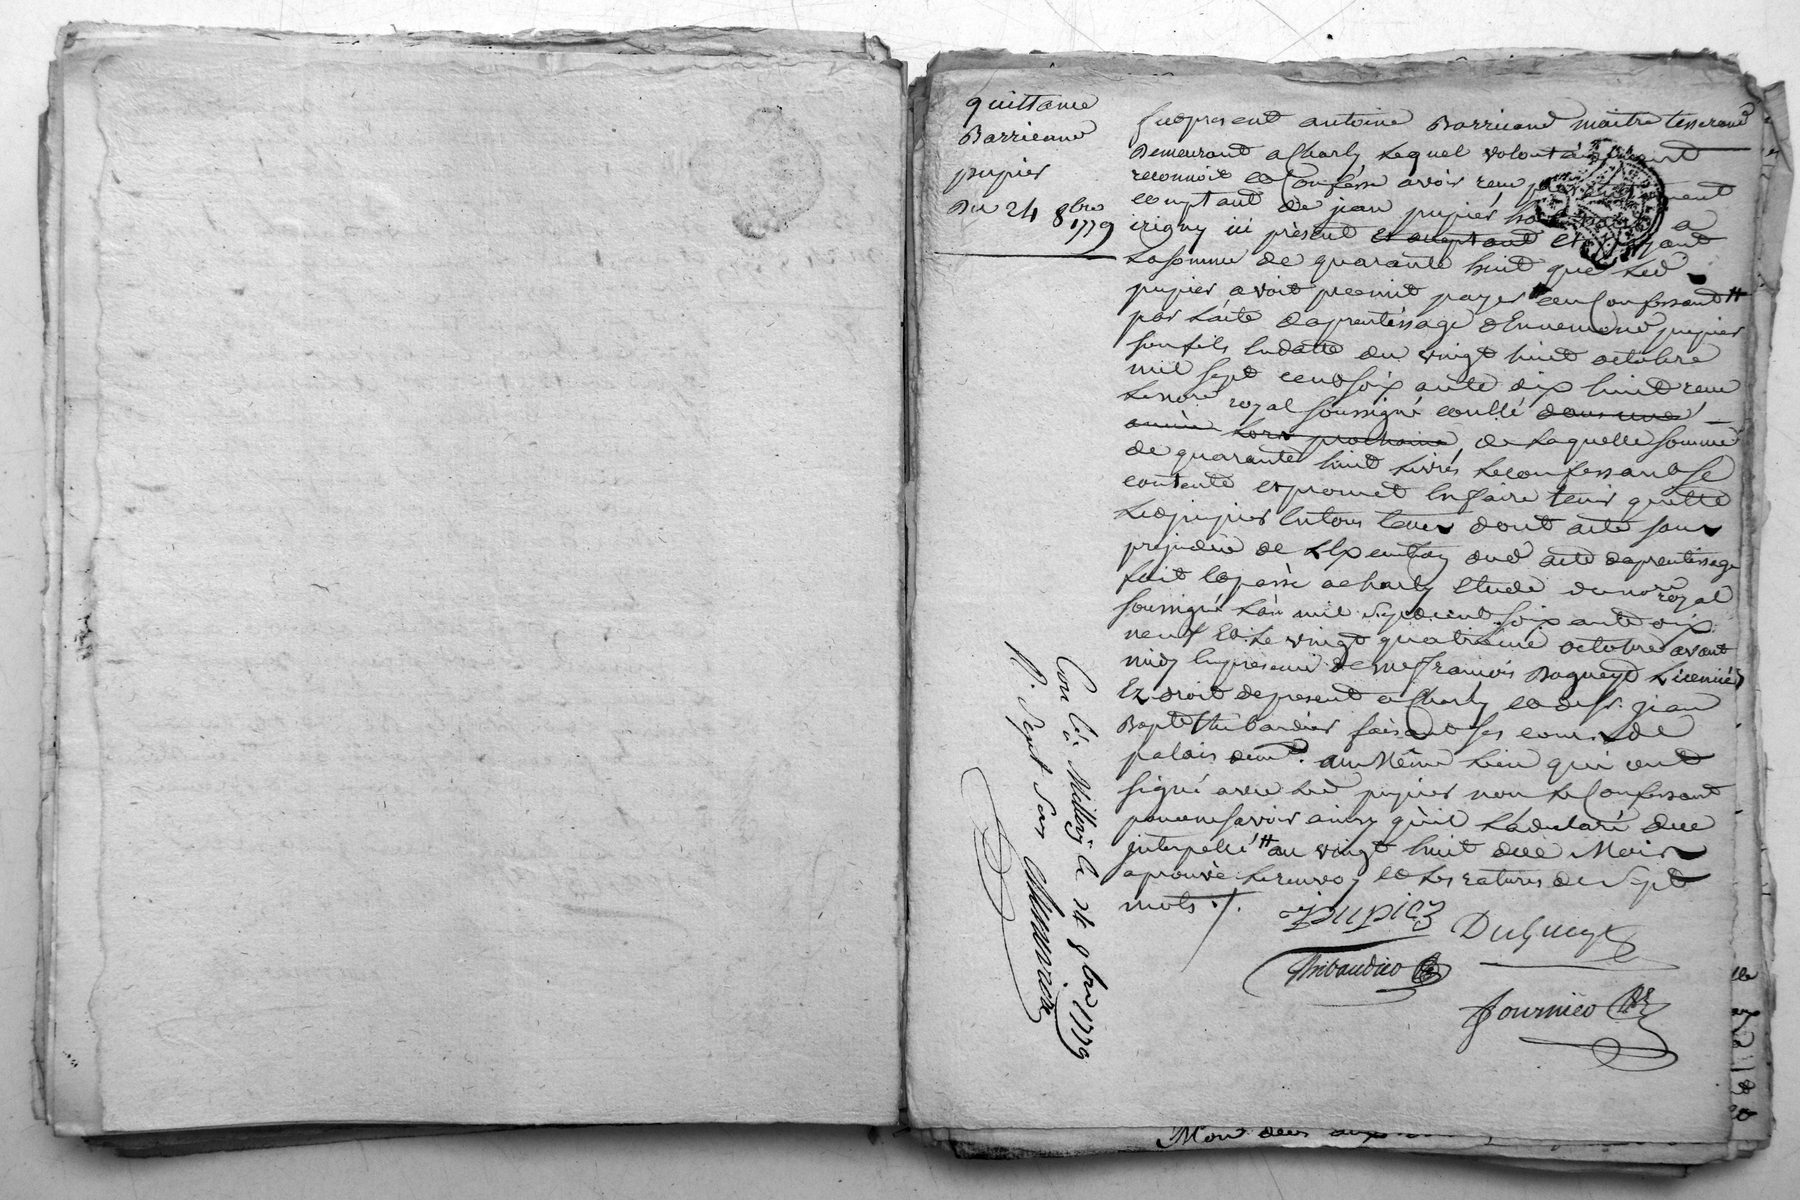 quittance
Barricand
pupier
Du 24 8bre
1779
fut present antoine Barricand maitre tisserand
Demeurant a Charly Lequel volontairement
reconnoit et Confesse avoir recu
comptant de jean pupier a
irigny ici présent et acceptant et
La somme de quarante huit que Led
pupier avoit promit payer au Confessant #
par Lacte daprentissage dEnnemond pupier
son fils En datte du vingt huit octobre
mil sept cent soix ante dix huit recu
Le nore royal soussigné conllé dans une
année Lors prochaine, de Laquelle somme
de quarante huit Livres Le confessant Se
contente et promet En faire tenir quitte
Led pupier En tous Lieux dont acte sans
prejudice de L'Exeution dud acte daprentissage
fait et passé a Charly Etude du nore royal
soussigné L'an mil sept cent soix ante dix
neuf Et Le vingt quatrieme octobre avant
midy En presence de Me francois Licentié
Ez droit de present a Charly et de Sr jean
Bapte Thibaudier faisant ses cours de
palais demt. au Même Lieu qui ont
signé avec Led pupier non Le Confessant
pour ne savoir ainsy qu'il L'a declaré due
interpellé # au vingt huit dud Mois
aprouvé Le renvoy et Les ratures de Sept
mots ./.
J pupier Dugueyt
Thibaudier
Fournier
Con lé à Millery le 24 8bre 1779
R. Sept Sols
Mon deux